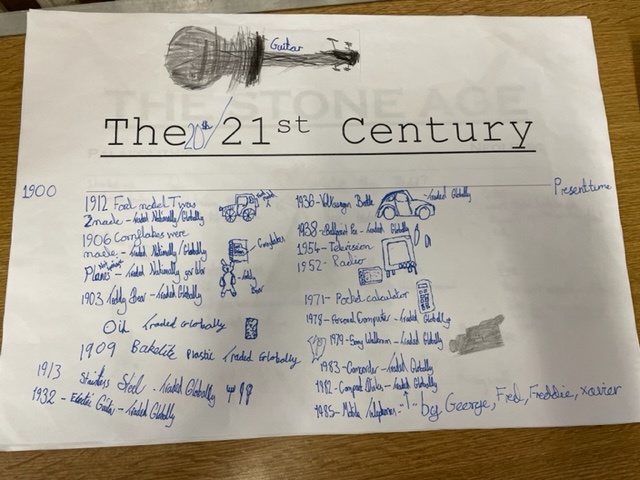 Guitar
THE STONE AGE
The 20th/21st Century
1900
Present time
1912 Ford model T was
made - traded Nationally/Globally
1906 Cornflakes were
made - traded Nationally/Globally
Cornflakes
Planes - traded Nationally for War
1903 Teddy Bear - traded Globally
Teddy
Bear
Oil Traded globally
1909 Bakelite Plastic Traded Globally
1913
Stainless Steel - traded Globally
1932 - Electric Guitar - traded Globally
1936 - Volkswagen Beetle - traded Globally
1938 - Ballpoint Pen - traded Globally
1954 - Television
1952 - Radio
1971 - Pocket calculator
1978 - Personal Computer - traded Globally
1979 - Sony Walkman - traded Globally
1983 - Camcorder - traded Globally
1982 - Compact Disks - traded Globally
1985 - Mobile Telephones - ↑
by George, Fred, Freddie, Xavier